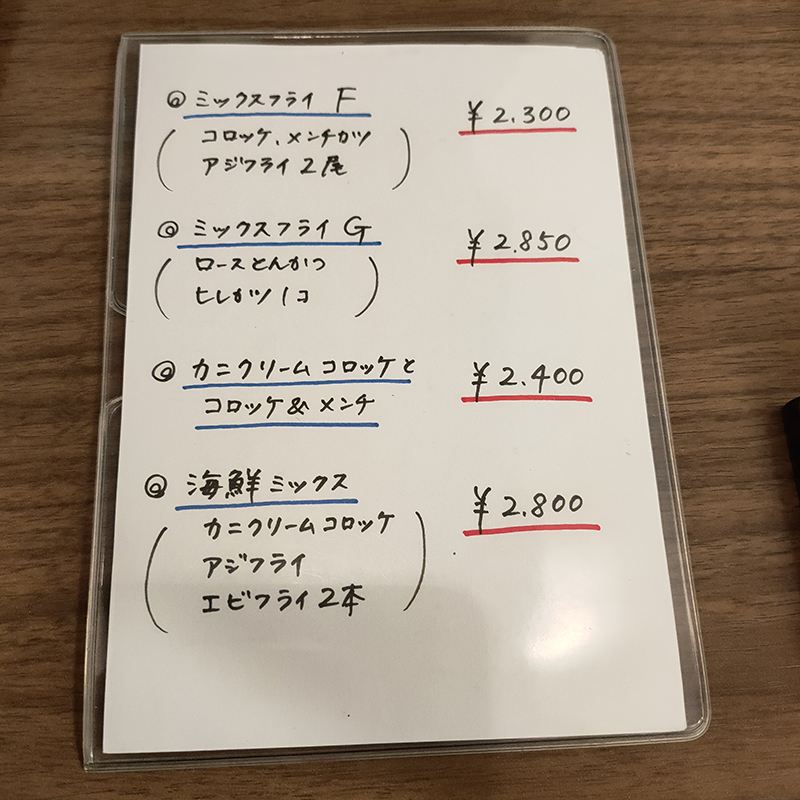 ◎ ミックスフライ F ¥2.300
(コロッケ、メンチカツ
アジフライ 2尾)
◎ ミックスフライ G ¥2.850
(ロースとんかつ
ヒレカツ1コ)
◎ カニクリームコロッケと ¥2.400
コロッケ&メンチ
◎ 海鮮ミックス ¥2.800
(カニクリームコロッケ
アジフライ
エビフライ2本)